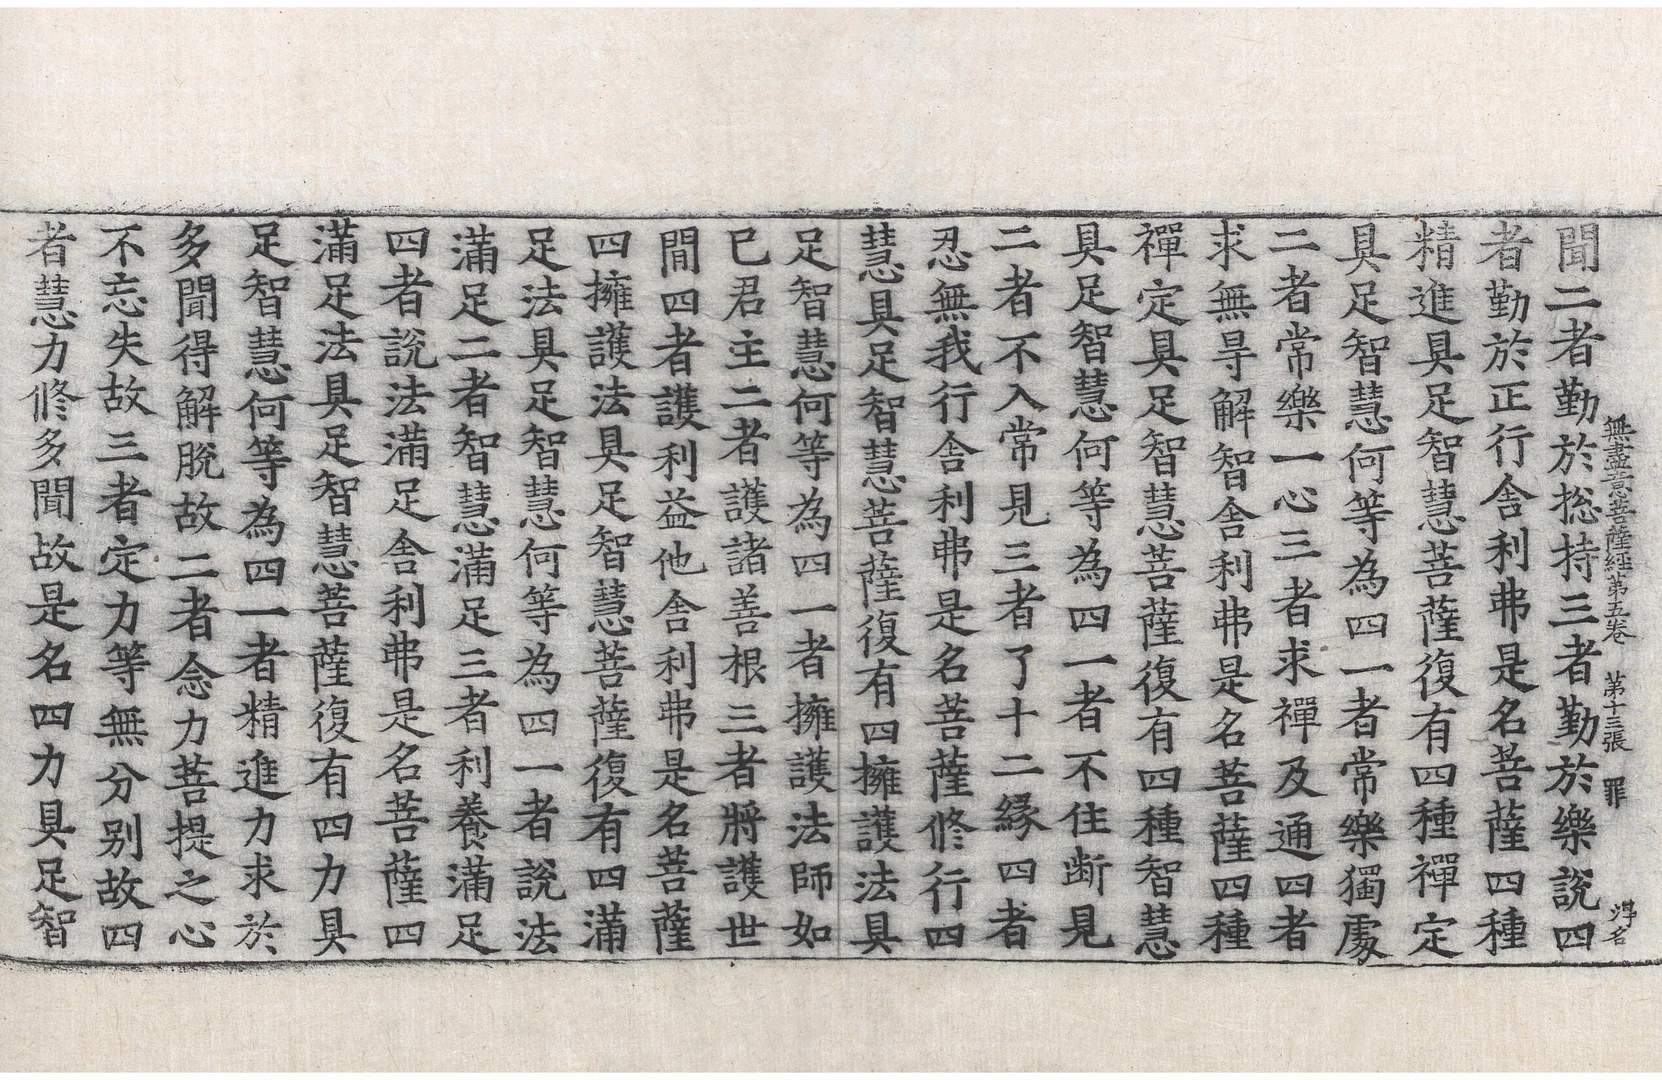 無盡意菩薩經第五卷　第十三張　罪
聞二者勤於捴持三者勤於樂說四
者勤於正行舍利弗是名菩薩四種
精進具足智慧菩薩復有四種禪定
具足智慧何等為四一者常樂獨處
二者常樂一心三者求禪及通四者
求無㝵解智舍利弗是名菩薩四種
禪定具足智慧菩薩復有四種智慧
具足智慧何等為四一者不住断見
二者不入常見三者了十二緣四者
忍無我行舍利弗是名菩薩修行四
慧具足智慧菩薩復有四擁護法具
足智慧何等為四一者擁護法師如
已君主二者護諸善根三者將護世
間四者護利益他舍利弗是名菩薩
四擁護法具足智慧菩薩復有四滿
足法具足智慧何等為四一者說法
滿足二者智慧滿足三者利養滿足
四者說法滿足舍利弗是名菩薩四
滿足法具足智慧菩薩復有四力具
足智慧何等為四一者精進力求於
多聞得解脫故二者念力菩提之心
不忘失故三者定力等無分别故四
者慧力修多聞故是名四力具足智